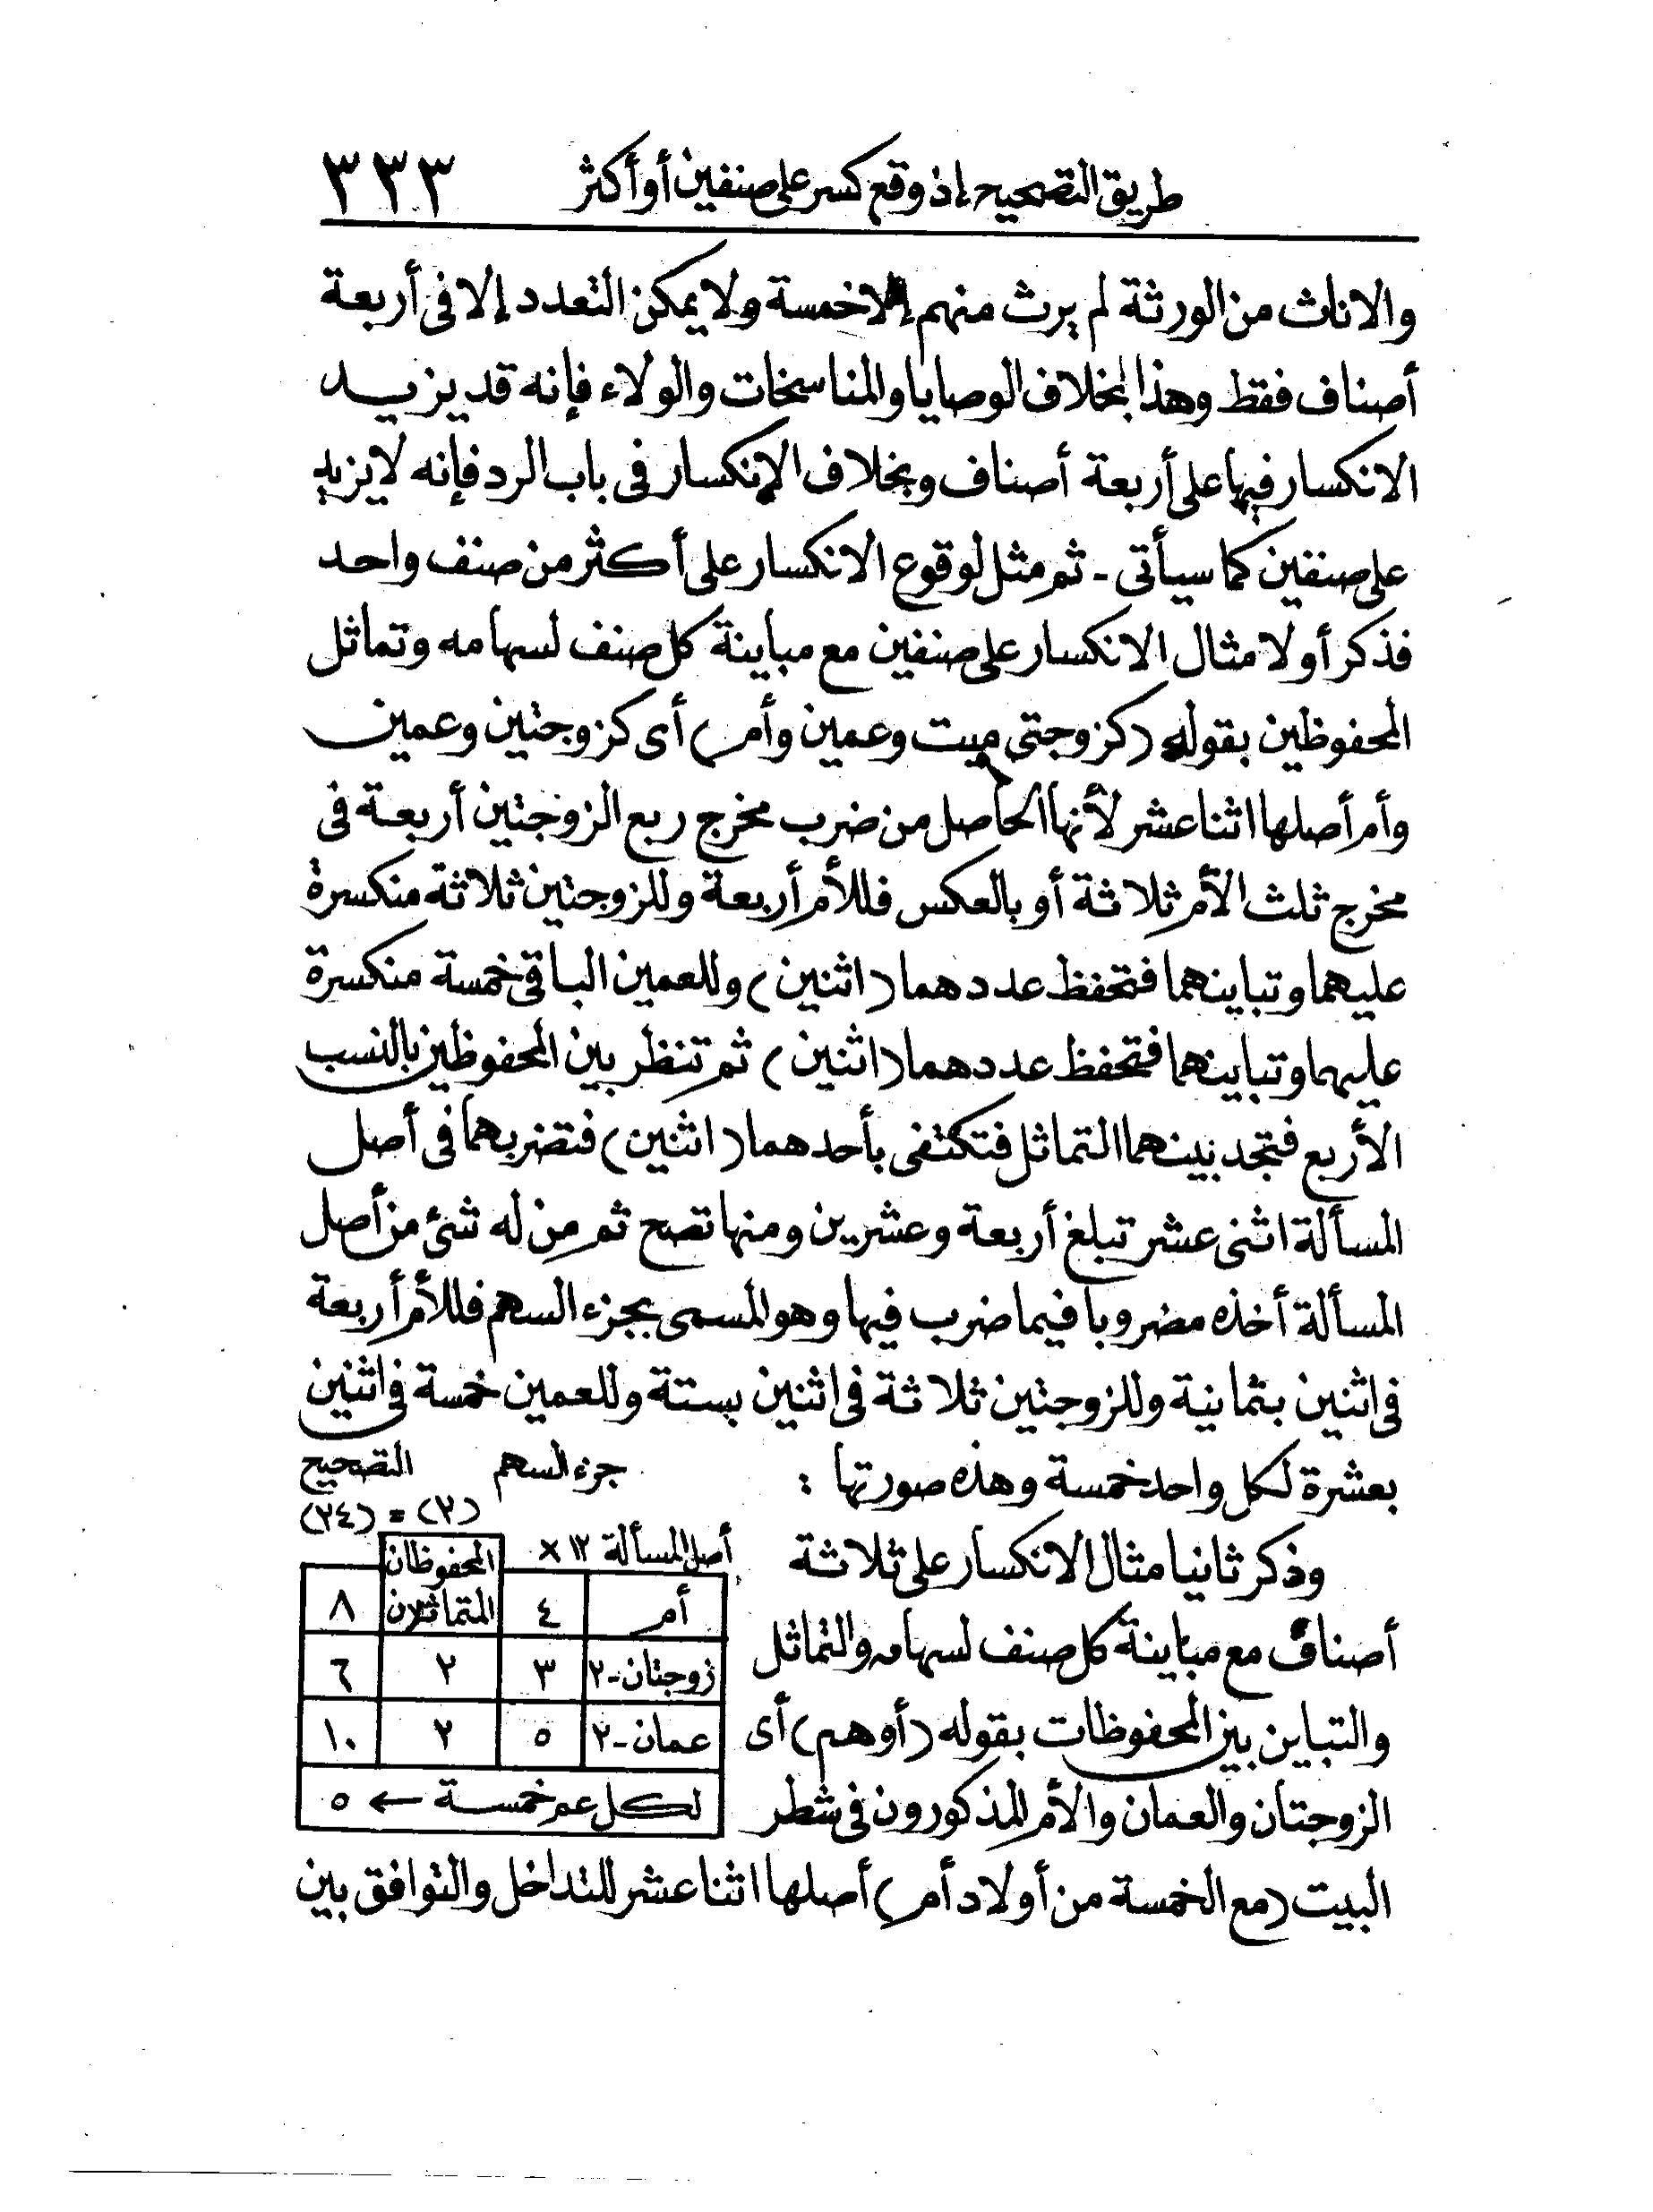 طريق التصحيح إذ وقع كسر على صنفين أو أكثر ٣٣٣
والاناث من الورثة لم يرث منهم إلا خمسة ولا يمكن التعدد إلا فى أربعة
أصناف فقط وهذا بخلاف الوصايا والمناسخات والولاء فإنه قد يزيد
الانكسار فيها على أربعة أصناف وبخلاف الإنكسار فى باب الرد فإنه لا يزيد
على صنفين كما سيأتى - ثم مثل لوقوع الانكسار على أكثر من صنف واحد
فذكر أولا مثال الانكسار على صنفين مع مباينة كل صنف لسهامه وتماثل
المحفوظين بقوله (كزوجتى ميت وعمين وأم) أى كزوجتين وعمين
وأم أصلها اثنا عشر لأنها الحاصل من ضرب مخرج ربع الزوجتين أربعة فى
مخرج ثلث الأم ثلاثة أو بالعكس فللأم أربعة وللزوجتين ثلاثة منكسرة
عليهما وتباينهما فتحفظ عددهما (اثنين) وللعمين الباقى خمسة منكسرة
عليهما وتباينهما فتحفظ عددهما (اثنين) ثم تنظر بين المحفوظين بالنسب
الأربع فتجد بينهما التماثل فتكتفى بأحدهما (اثنين) فتضربهما فى أصل
المسألة اثنى عشر تبلغ أربعة وعشرين ومنها تصح ثم من له شئ من أصل
المسألة أخذه مضروبا فيما ضرب فيها وهو المسمى بجزء السهم فللأم أربعة
فى اثنين بثمانية وللزوجتين ثلاثة فى اثنين بستة وللعمين خمسة فى اثنين
بعشرة لكل واحد خمسة وهذه صورتها :
جزء السهم التصحيح
(٢) = (٢٤)
أصل المسألة ١٢ ×
المحفوظان
أم ٤ المتماثلان ٨
زوجتان-٢ ٣ ٢ ٦
عمان-٢ ٥ ٢ ١٠
لكل عم خمسة ← ٥
وذكر ثانيا مثال الانكسار على ثلاثة
أصناف مع مباينة كل صنف لسهامه والتماثل
والتباين بين المحفوظات بقوله (أوهم) أى
الزوجتان والعمان والأم المذكورون فى شطر
البيت (مع الخمسة من أولاد أم) أصلها اثنا عشر للتداخل والتوافق بين